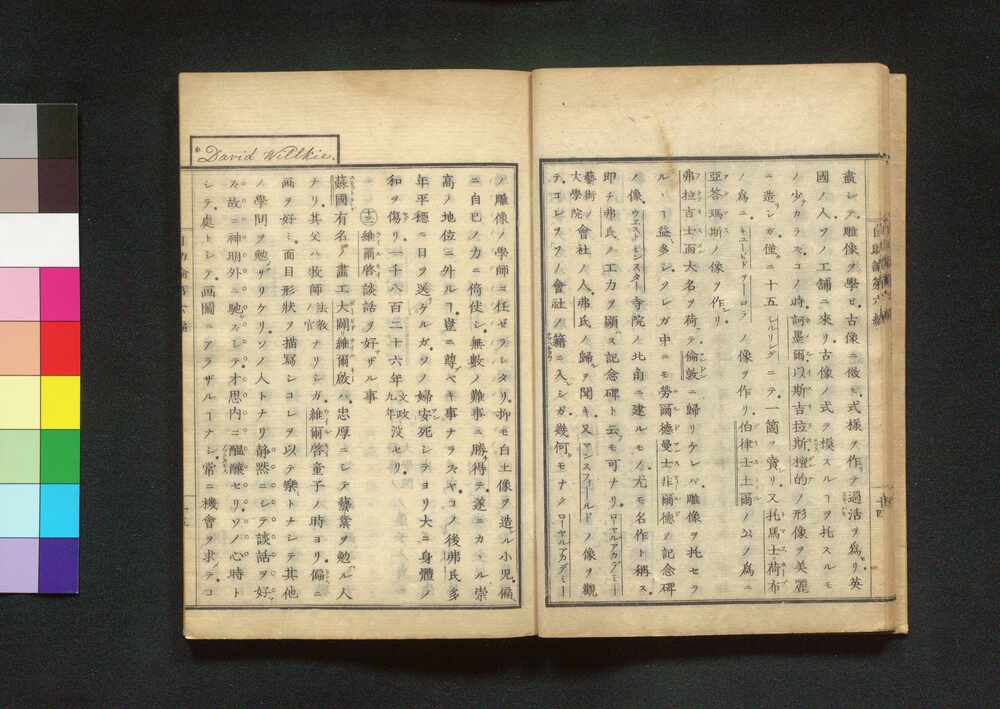 盡シテ雕像ヲ學ビ古像ニ傚ヒ式樣ヲ作テ過活ヲ爲セリ英
國ノ人ソノ工舖ニ來リ古像ノ式ヲ模スルヿヲ托スルモ
ノ少カラズコノ時訶墨爾以斯吉拉斯壇的ノ形像ヲ美麗
ニ造シガ僅ニ十五シルリングニテ一箇ヲ賣リ又托馬士荷布
ノ爲ニキユーピドヲーロラノ像ヲ作リ伯律士土爾ノ公ノ爲ニ
亞答瑪斯ノ像ヲ作リ
弗拉吉士西大名ヲ荷テ倫敦ニ歸リケレバ雕像ヲ托セラ
ルヽヿ益多シソレガ中ニモ勞爾德曼士非爾德ノ記念碑
ノ像ウエストミンスター寺院ノ北南ニ建ルモノ尤モ名作ト稱ス
即チ弗氏ノ工力ヲ顯ス記念碑ト云モ可ナリローヤルアカデミー
藝術大學院ノ會社ノ人弗氏ノ歸ヲ聞キ又マンスフィールドノ像ヲ觀
テコレヲソノ會社ノ籍ニ入シガ幾何モナクローヤルアカデミー
David Willkie.
ノ雕像ノ學師ニ任ゼラレタリ抑モ白土像ヲ造ル小兒偏
ニ自己ノ力ニ倚使シ無數ノ難事ニ勝得テ遂ニカヽル崇
高ノ地位ニ升ルヿ豈ニ尊ベキ事ナラズヤコノ後弗氏多
年平穩ニ日ヲ送ケルガソノ婦安死シテヨリ大ニ身體ノ
和ヲ傷リ一千八百二十六年文政九年沒セリ
十三 維爾啓談話ヲ好ザル事
蘇國有名ノ畫工大闢維爾啟ハ忠厚ニシテ藝業ヲ勉ル人
ナリ其父ハ牧師法教官ナリシガ維爾啓童子ノ時ヨリ偏ニ
画ヲ好ミ面目形狀ヲ描寫シコレヲ以テ樂トナシテ其他
ノ學問ヲ勉ザリケリソノ人トナリ静黙ニシテ談話ヲ好
ズ故ニ神明外ニ馳ズシテ才思内ニ醞釀セリソノ心時ト
シテ處トシテ画圖ニアラザルヿナシ常ニ機會ヲ求テコ